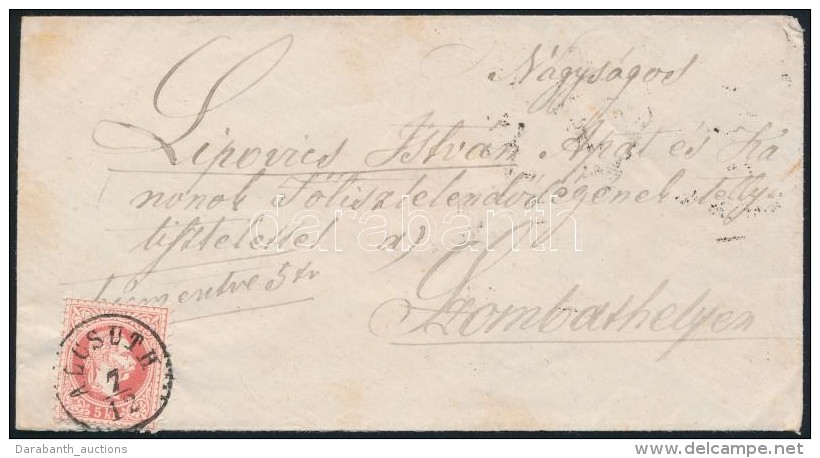 Nagyságos
Lipovics István Apát és Ka
nonok
tisztelettel
bérmentve 5 kr
Szombathelyen
ALCSUTH
7
12
5 kr
darabanth
Darabanth_auctions
www.delcampe.net